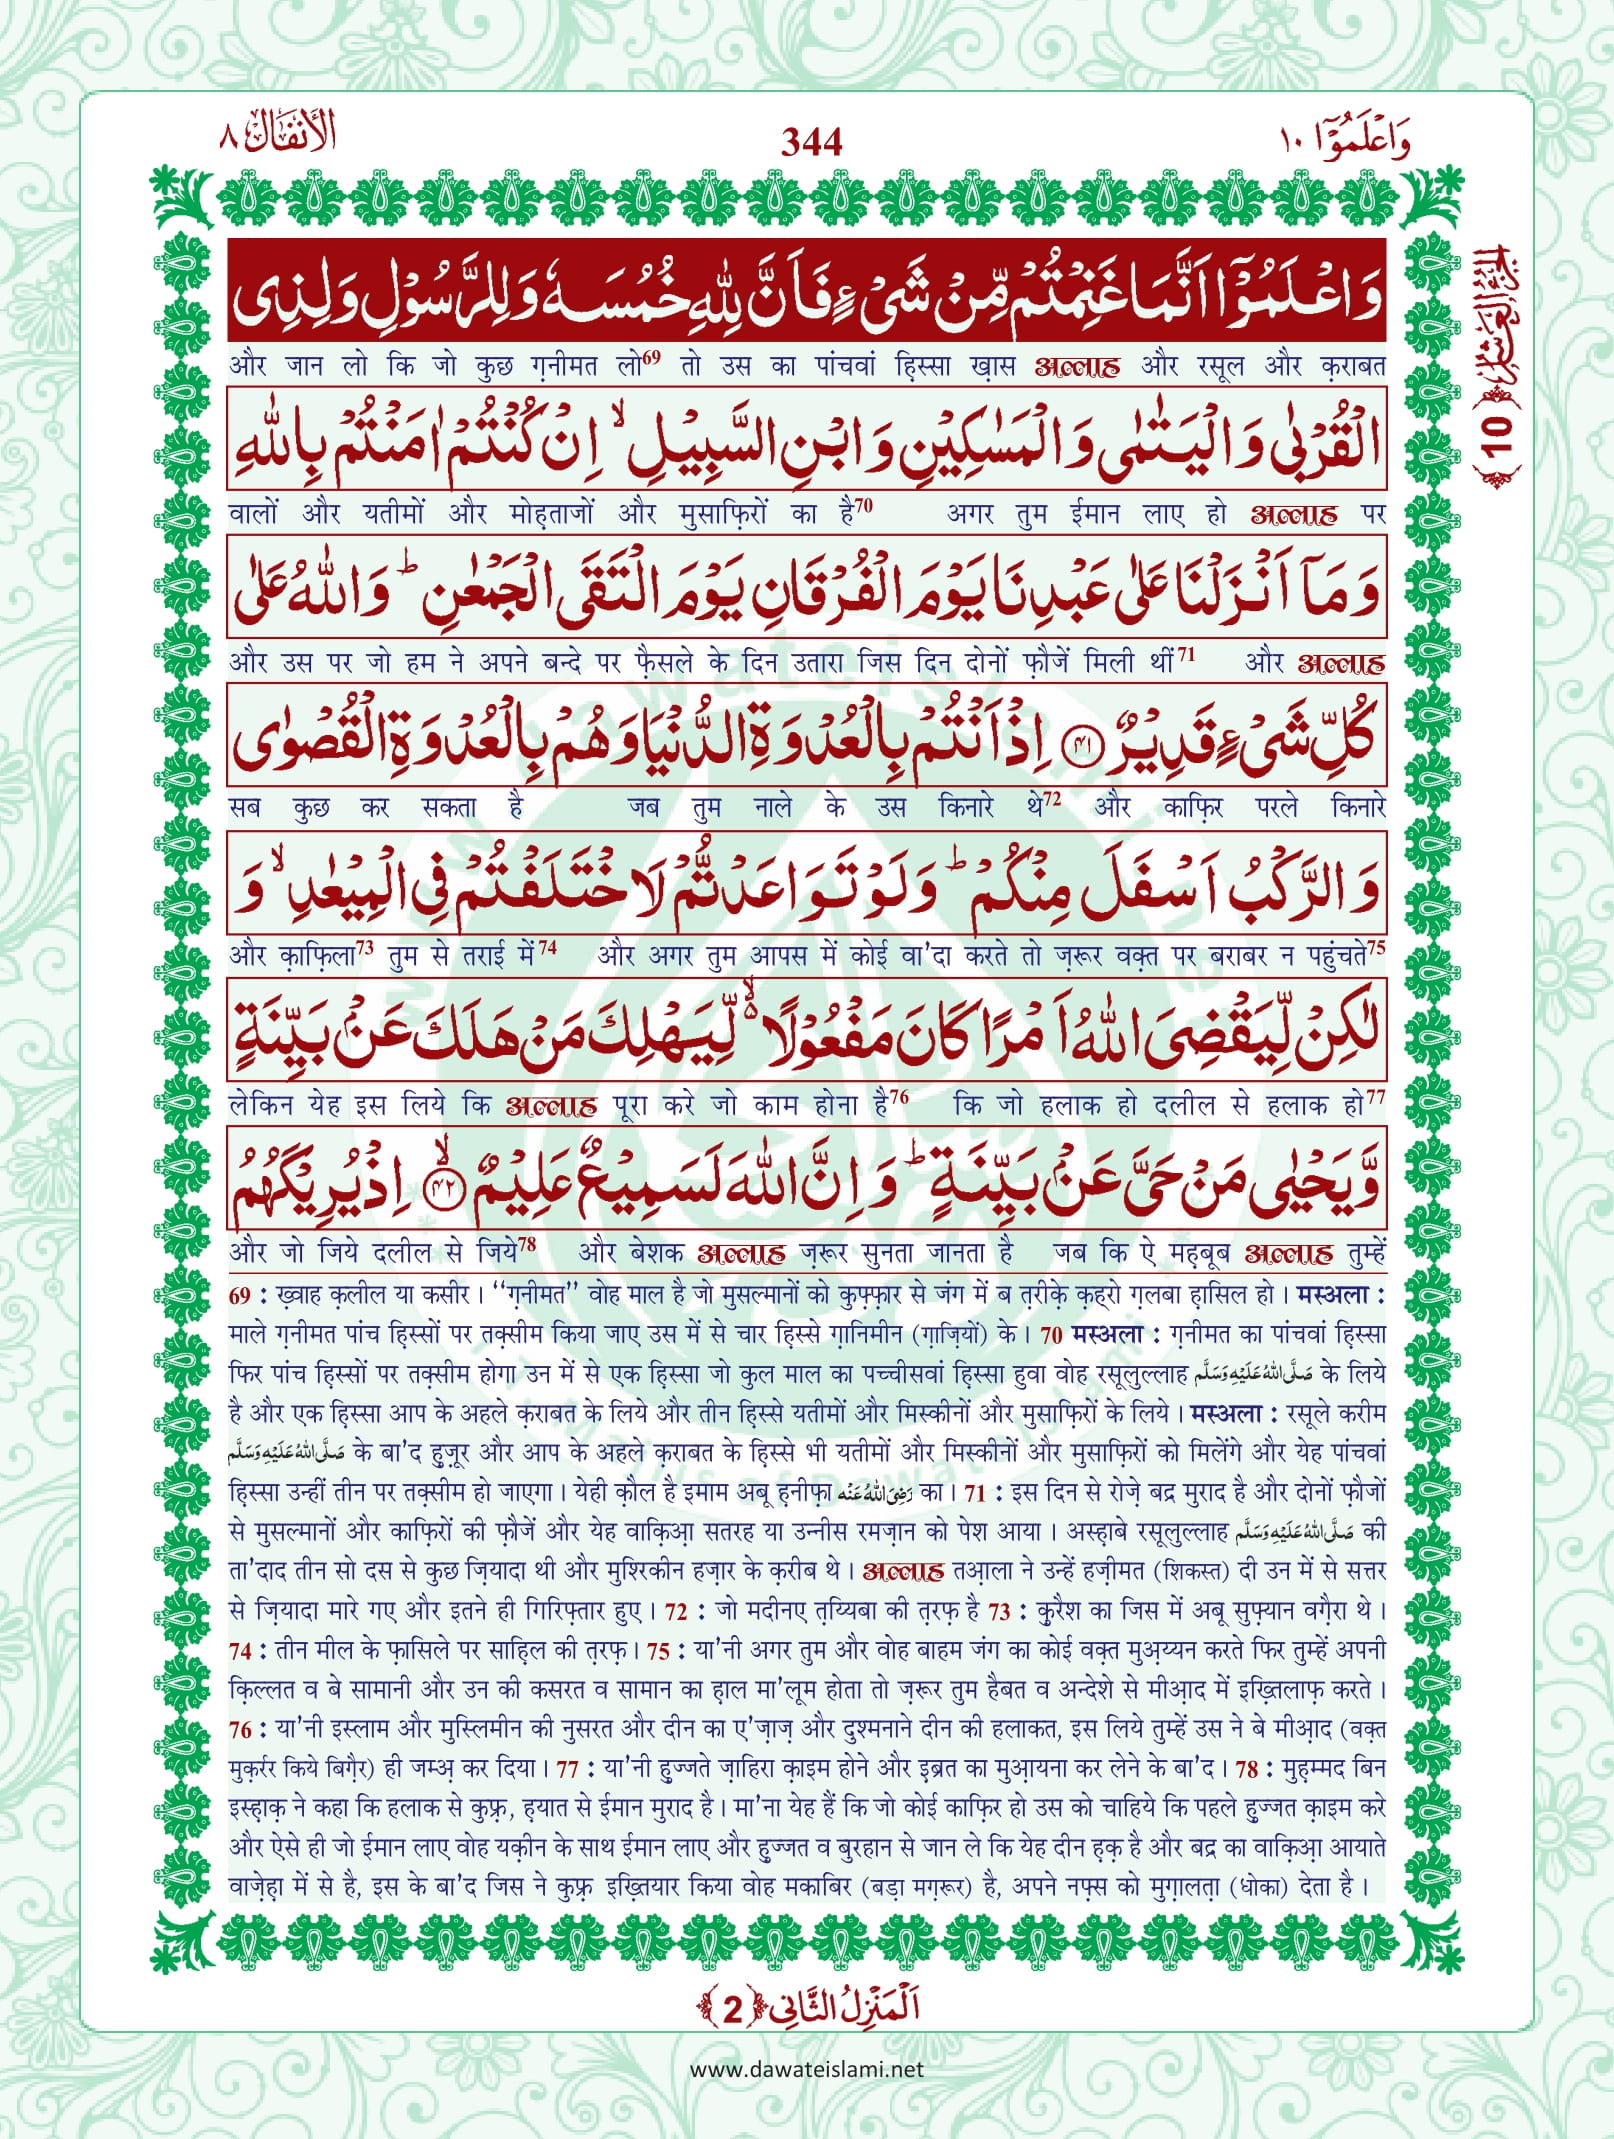 وَاعْلَمُوْۤا ١٠
344
الْاَنْفَال ٨
وَاعْلَمُوْۤا اَنَّمَا غَنِمْتُمْ مِّنْ شَیْءٍ فَاَنَّ لِلّٰهِ خُمُسَهٗ وَ لِلرَّسُوْلِ وَ لِذِی
और जान लो कि जो कुछ ग़नीमत लो69 तो उस का पांचवां हिस्सा ख़ास अल्लाह और रसूल और क़राबत
الْقُرْبٰى وَ الْیَتٰمٰى وَ الْمَسٰكِیْنِ وَ ابْنِ السَّبِیْلِ ۙ اِنْ كُنْتُمْ اٰمَنْتُمْ بِاللّٰهِ
वालों और यतीमों और मोह़ताजों और मुसाफ़िरों का है70 अगर तुम ईमान लाए हो अल्लाह पर
وَ مَاۤ اَنْزَلْنَا عَلٰى عَبْدِنَا یَوْمَ الْفُرْقَانِ یَوْمَ الْتَقَى الْجَمْعٰنِ ؕ وَ اللّٰهُ عَلٰى
और उस पर जो हम ने अपने बन्दे पर फ़ैसले के दिन उतारा जिस दिन दोनों फ़ौजें मिली थीं71 और अल्लाह
كُلِّ شَیْءٍ قَدِیْرٌ ﴿۴۱﴾ اِذْ اَنْتُمْ بِالْعُدْوَةِ الدُّنْیَا وَ هُمْ بِالْعُدْوَةِ الْقُصْوٰى
सब कुछ कर सकता है जब तुम नाले के उस किनारे थे72 और काफ़िर परले किनारे
وَ الرَّكْبُ اَسْفَلَ مِنْكُمْ ؕ وَ لَوْ تَوَاعَدْتُّمْ لَاخْتَلَفْتُمْ فِی الْمِیْعٰدِ ۙ وَ
और क़ाफ़िला73 तुम से तराई में74 और अगर तुम आपस में कोई वा'दा करते तो ज़रूर वक़्त पर बराबर न पहुंचते75
لٰكِنْ لِّیَقْضِیَ اللّٰهُ اَمْرًا كَانَ مَفْعُوْلًا ۙ۬ لِّیَهْلِكَ مَنْ هَلَكَ عَنْۢ بَیِّنَةٍ
लेकिन येह इस लिये कि अल्लाह पूरा करे जो काम होना है76 कि जो हलाक हो दलील से हलाक हो77
وَّ یَحْیٰى مَنْ حَیَّ عَنْۢ بَیِّنَةٍ ؕ وَ اِنَّ اللّٰهَ لَسَمِیْعٌ عَلِیْمٌ ﴿۴۲﴾ۙ اِذْ یُرِیْكَهُمُ
और जो जिये दलील से जिये78 और बेशक अल्लाह ज़रूर सुनता जानता है जब कि ऐ मह़बूब अल्लाह तुम्हें
69 : ख़्वाह क़लील या कसीर। ‘‘ग़नीमत’’ वोह माल है जो मुसल्मानों को कुफ़्फ़ार से जंग में ब त़रीक़े क़ह्रो ग़लबा ह़ासिल हो। मस्अला :
माले ग़नीमत पांच हिस्सों पर तक़्सीम किया जाए उस में से चार हिस्से ग़ानिमीन (ग़ाज़ियों) के। 70 मस्अला : ग़नीमत का पांचवां हिस्सा
फिर पांच हिस्सों पर तक़्सीम होगा उन में से एक हिस्सा जो कुल माल का पच्चीसवां हिस्सा हुवा वोह रसूलुल्लाह صَلَّى اللهُ عَلَيْهِ وَسَلَّم के लिये
है और एक हिस्सा आप के अहले क़राबत के लिये और तीन हिस्से यतीमों और मिस्कीनों और मुसाफ़िरों के लिये। मस्अला : रसूले करीम
صَلَّى اللهُ عَلَيْهِ وَسَلَّم के बा'द हुज़ूर और आप के अहले क़राबत के हिस्से भी यतीमों और मिस्कीनों और मुसाफ़िरों को मिलेंगे और येह पांचवां
हिस्सा उन्हीं तीन पर तक़्सीम हो जाएगा। येही क़ौल है इमाम अबू ह़नीफ़ा رَضِىَ اللهُ عَنْه का। 71 : इस दिन से रोज़े बद्र मुराद है और दोनों फ़ौजों
से मुसल्मानों और काफ़िरों की फ़ौजें और येह वाक़िआ़ सतरह या उन्नीस रमज़ान को पेश आया। अस्ह़ाबे रसूलुल्लाह صَلَّى اللهُ عَلَيْهِ وَسَلَّم की
ता'दाद तीन सो दस से कुछ ज़ियादा थी और मुश्रिकीन हज़ार के क़रीब थे। अल्लाह तआ़ला ने उन्हें हज़ीमत (शिकस्त) दी उन में से सत्तर
से ज़ियादा मारे गए और इतने ही गिरिफ़्तार हुए। 72 : जो मदीनए त़य्यिबा की त़रफ़ है 73 : क़ुरैश का जिस में अबू सुफ़्यान वग़ैरा थे।
74 : तीन मील के फ़ासिले पर साहिल की त़रफ़। 75 : या'नी अगर तुम और वोह बाहम जंग का कोई वक़्त मुअ़य्यन करते फिर तुम्हें अपनी
क़िल्लत व बे सामानी और उन की कसरत व सामान का ह़ाल मा'लूम होता तो ज़रूर तुम हैबत व अन्देशे से मीआ़द में इख़्तिलाफ़ करते।
76 : या'नी इस्लाम और मुस्लिमीन की नुसरत और दीन का ए'ज़ाज़ और दुश्मनाने दीन की हलाकत, इस लिये तुम्हें उस ने बे मीआ़द (वक़्त
मुक़र्रर किये बिग़ैर) ही जम्अ़ कर दिया। 77 : या'नी हुज्जते ज़ाहिरा क़ाइम होने और इ़ब्रत का मुआ़यना कर लेने के बा'द। 78 : मुह़म्मद बिन
इस्ह़ाक़ ने कहा कि हलाक से कुफ़्र, ह़यात से ईमान मुराद है। मा'ना येह हैं कि जो कोई काफ़िर हो उस को चाहिये कि पहले हुज्जत क़ाइम करे
और ऐसे ही जो ईमान लाए वोह यक़ीन के साथ ईमान लाए और हुज्जत व बुरहान से जान ले कि येह दीन ह़क़ है और बद्र का वाक़िआ़ आयाते
वाज़ेह़ा में से है, इस के बा'द जिस ने कुफ़्र इख़्तियार किया वोह मकाबिर (बड़ा मग़रूर) है, अपने नफ़्स को मुग़ालत़ा (धोका) देता है।
اَلْمَنْزِلُ الثَّانِی ﴿2﴾
اَلْجُزْءُ الْعَاشِر ﴿10﴾
www.dawateislami.net